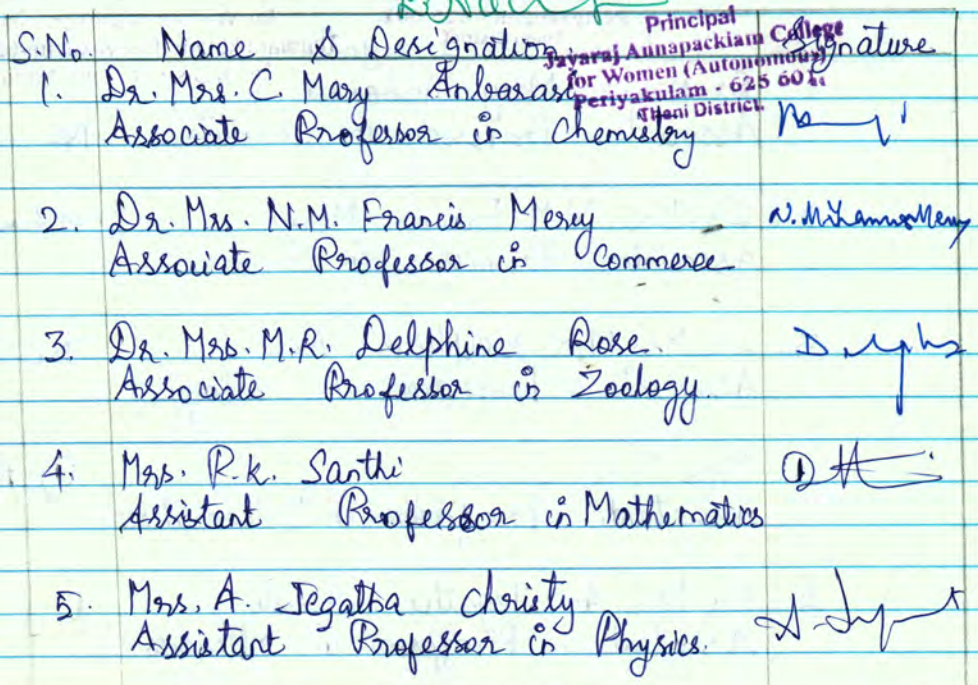 Principal
Jayaraj Annapackiam College
for Women (Autonomous)
Periyakulam - 625 601
Theni District.
S.No. Name & Designation. Signature
1. Dr. Mrs. C. Mary Anbarasi
Associate Professor in Chemistry
2. Dr. Mrs. N.M. Francis Mercy
Associate Professor in Commerce
3. Dr. Mrs. M.R. Delphine Rose.
Associate Professor in Zoology.
4. Mrs. R.K. Santhi
Assistant Professor in Mathematics
5. Mrs. A. Jegatha Christy
Assistant Professor in Physics.